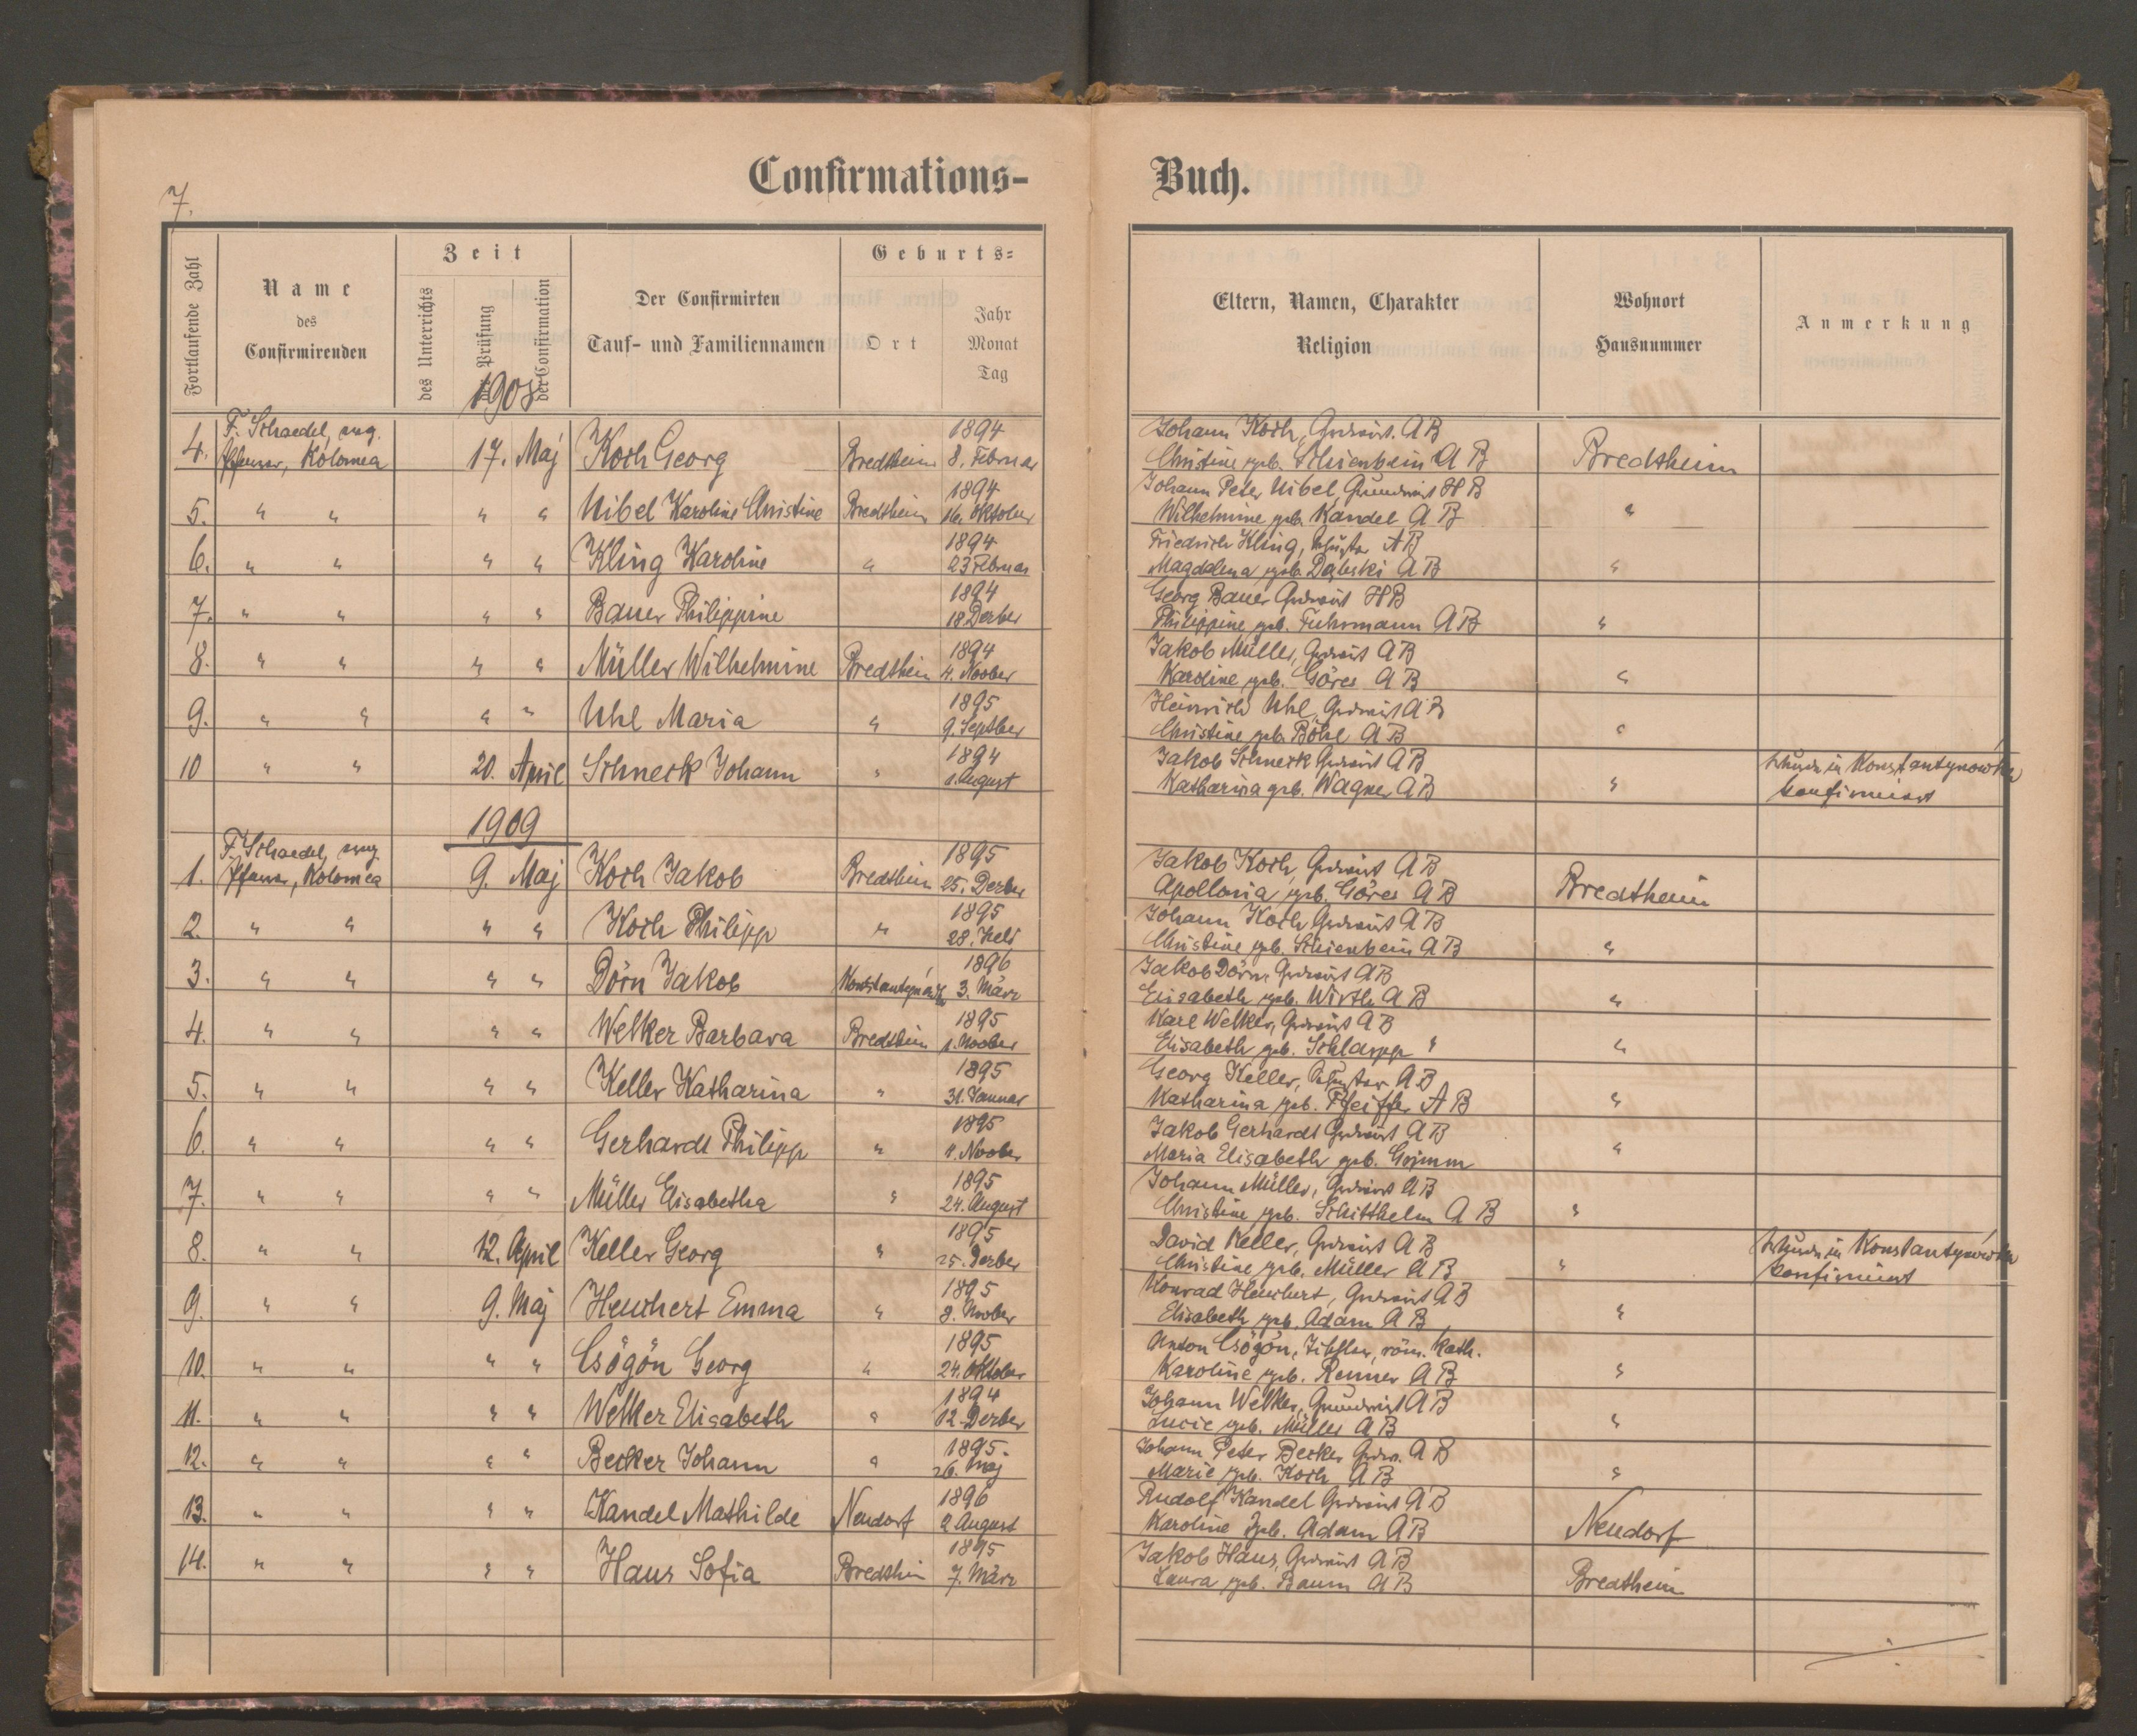 7.
Confirmations- Buch.
Fortlaufende Zahl
Name des Confirmirenden
Zeit
des Unterrichts
der Prüfung
der Confirmation
Der Confirmirten Tauf- und Familiennamen
Geburts=
Ort
Jahr Monat Tag
Eltern, Namen, Charakter Religion
Wohnort Hausnummer
Anmerkung
1908
4. F. Schaedel, evng. Pfarrer, Kolomea 17. Maj Koch Georg Bredtheim 1894 8. Februar Johann Koch, Grdwirt. A B Christine geb. Schienbein A B Bredtheim
5. " " " " Uibel Karoline Christine Bredtheim 1894 16. Oktober Johann Peter Uibel, Grundwirt H B Wilhelmine geb. Kandel A B "
6. " " " " Kling Karoline " 1894 23 Februar Friedrich Kling, Schuster A B Magdalena geb. Dąbski A B "
7. " " " " Bauer Philippine 1894 18 Dezber Georg Bauer Grdwirt H B Philippine geb. Fuhrmann A B "
8. " " " " Müller Wilhelmine Bredtheim 1894 4. Novber Jakob Müller, Grdwirt A B Karoline geb. Göres A B "
9. " " " " Uhl Maria " 1895 9. Septber Heinrich Uhl, Grdwirt A B Christine geb. Böhl A B "
10 " " 20. April Schneck Johann " 1894 1. August Jakob Schneck Grdwirt A B Katharina geb. Wagner A B " Wurde in Konstantynówka konfirmiert
1909
1. F. Schaedel, evng. Pfarrer, Kolomea 9. Maj Koch Jakob Bredtheim 1895 25. Dezber Jakob Koch, Grdwirt A B Apollonia geb. Göres A B Bredtheim
2. " " " " Koch Philipp " 1895 28. Johann Koch Grdwirt A B Christine geb. Schienbein A B "
3. " " " " Dörn Jakob Konstantynówka 1896 3. März Jakob Dörn, Grdwirt A B Elisabeth geb. Wirth A B "
4. " " " " Welker Barbara Bredtheim 1895 1. Novber Karl Welker, Grdwirt A B Elisabeth geb. Schlapp " "
5. " " " " Keller Katharina " 1895 31. Januar Georg Keller, Schuster A B Katharina geb. Pfeiffer A B "
6. " " " " Gerhardt Philipp " 1895 1. Novber Jakob Gerhardt Grdwirt A B Maria Elisabeth geb. Grimm "
7. " " " " Müller Elisabetha " 1895 24. August Johann Müller, Grdwirt A B Christine geb. Schitthelm A B "
8. " " 12. April Keller Georg " 1895 25. Dezber David Keller, Grdwirt A B Christine geb. Müller A B " Wurde in Konstantynówka konfirmiert
9. " " 9. Maj Heuchert Emma " 1895 8. Novber Konrad Heuchert, Grdwirt A B Elisabeth geb. Adam A B "
10. " " " " Csögön Georg " 1895 24. Oktober Anton Csögön, Tischler, röm. kath. Karoline geb. Renner A B "
11. " " " " Welker Elisabeth " 1894 12. Dezber Johann Welker, Grundwirt A B Lucie geb. Müller A B "
12. " " " " Becker Johann " 1895. 26. Maj Johann Peter Becker Grdw. A B Marie geb. Koch A B "
13. " " " " Kandel Mathilde Neudorf 1896 2 August Rudolf Kandel Grdwirt A B Karoline geb. Adam A B Neudorf
14. " " " " Haus Sofia Bredtheim 1895 7. März Jakob Haus, Grdwirt A B Laura geb. Baum A B Bredtheim